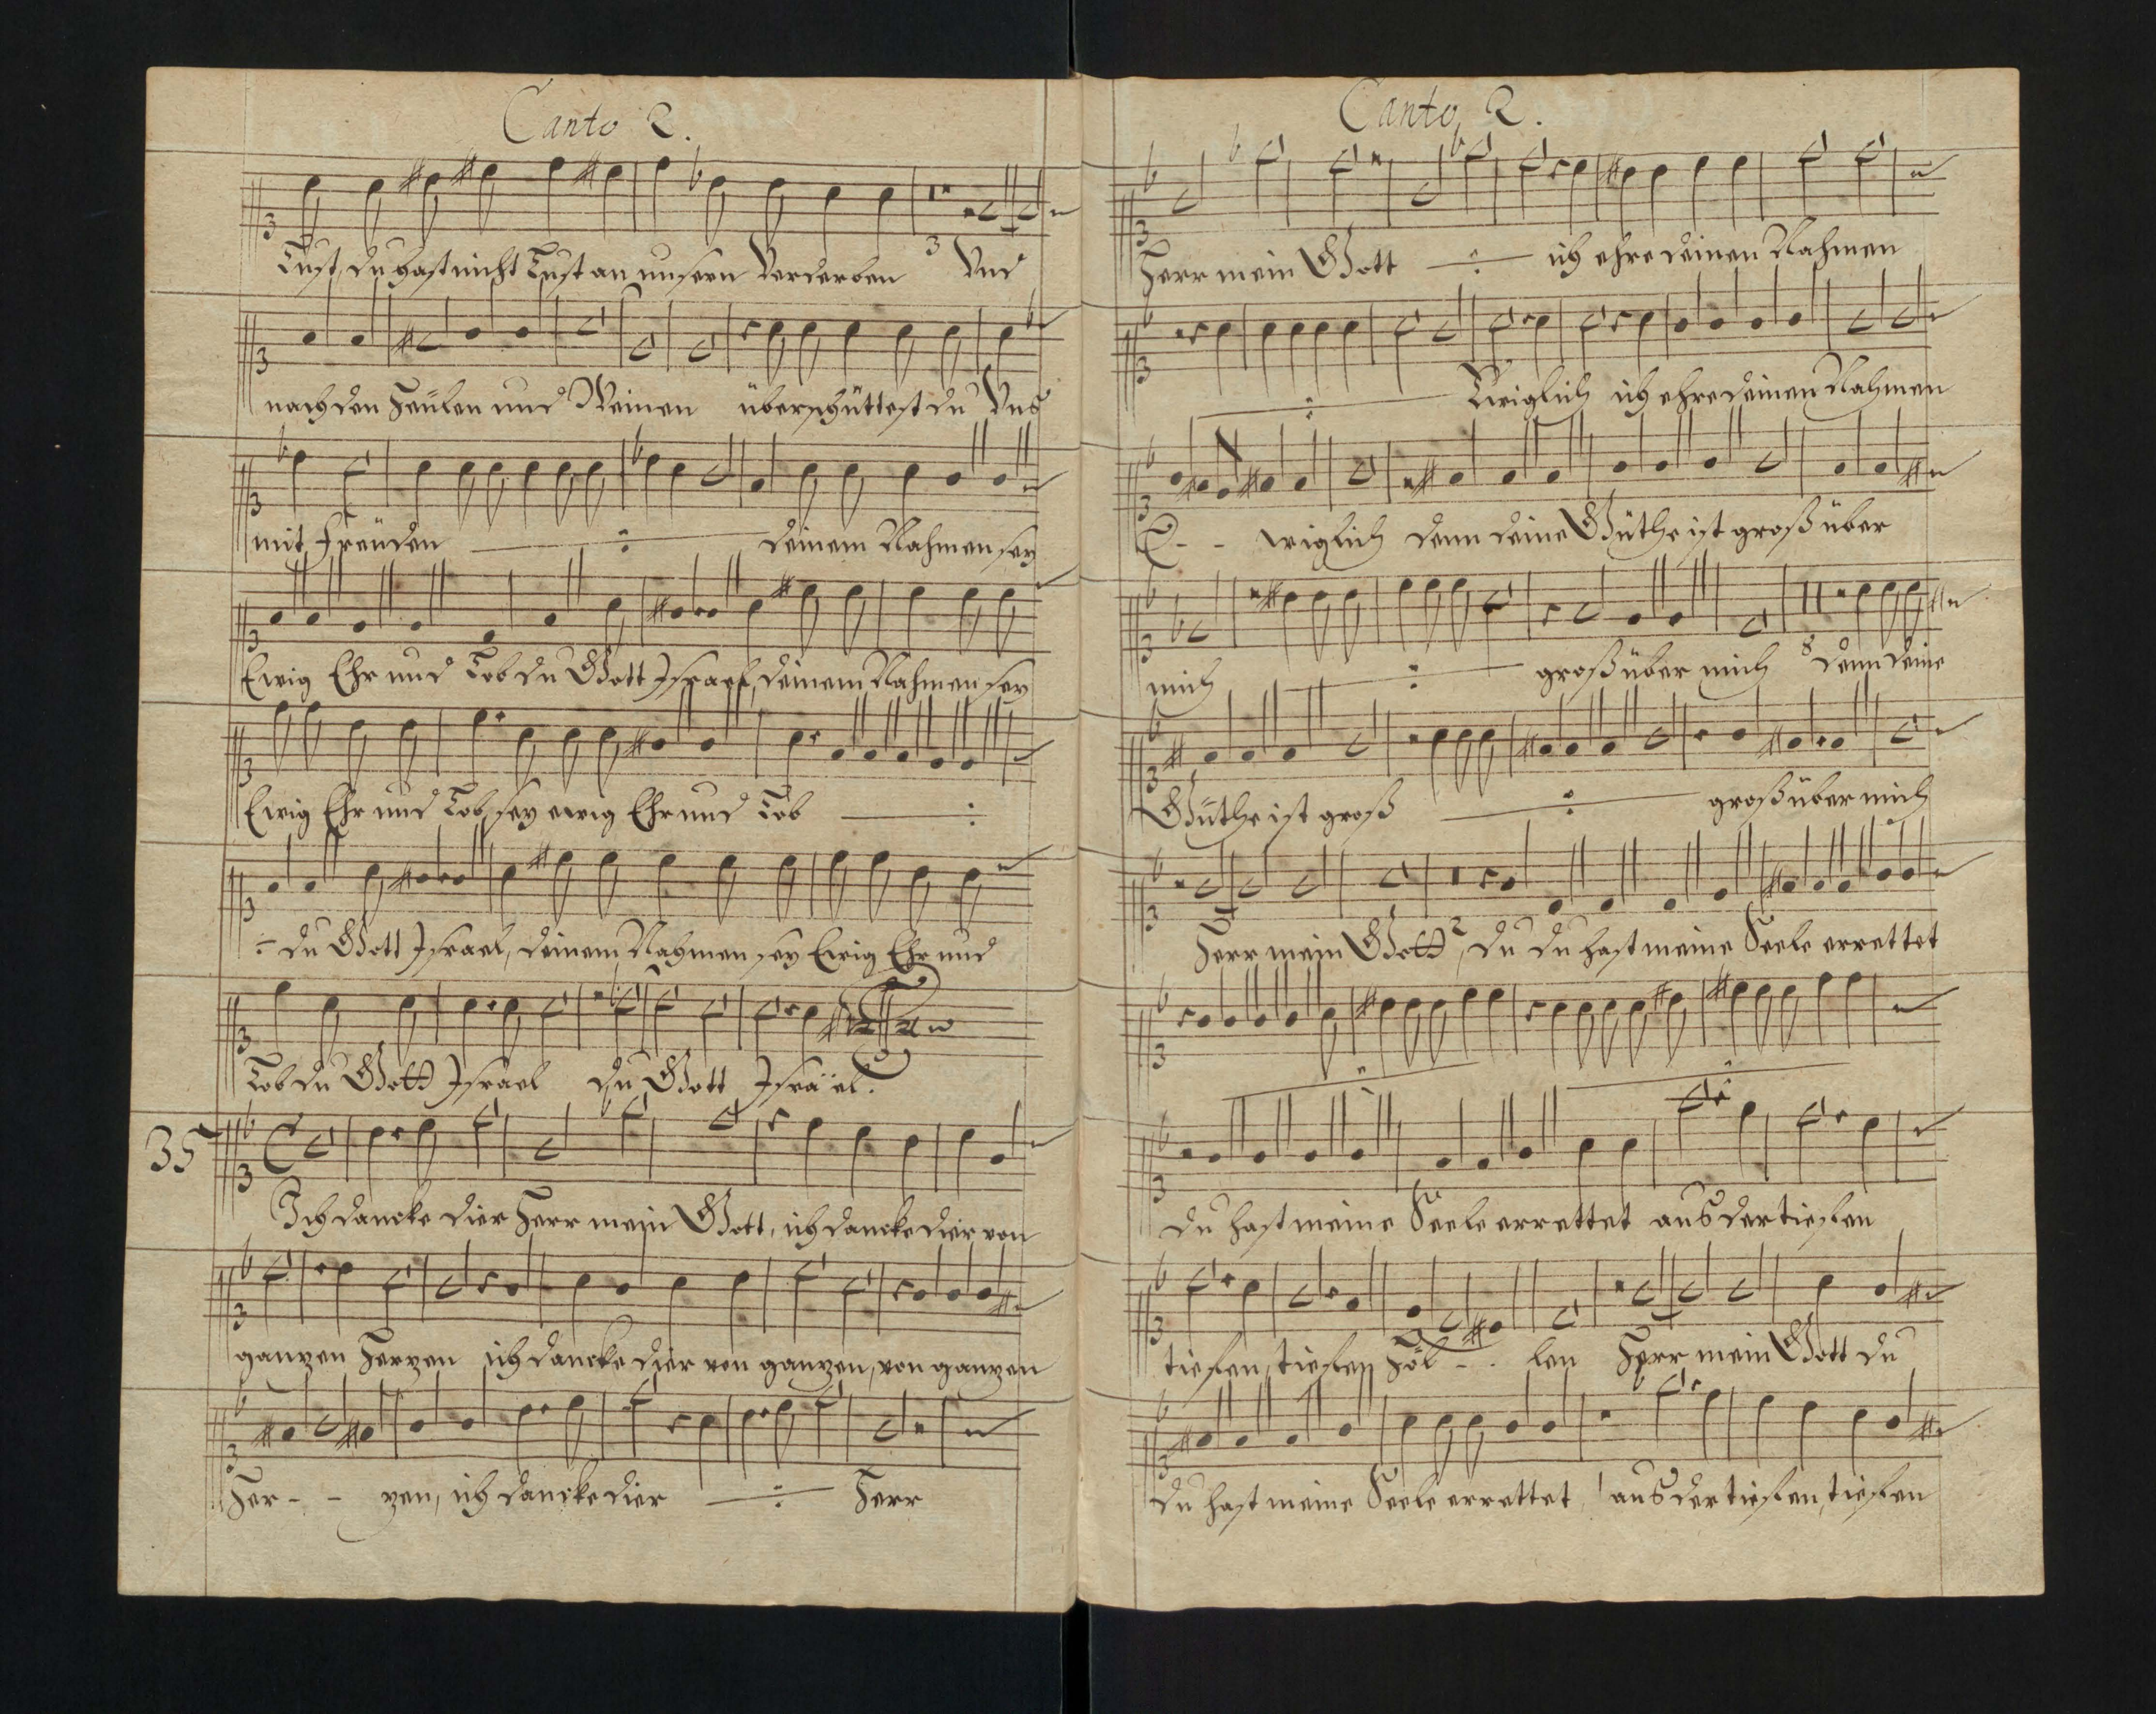 Canto 2.
Lust, du hast nicht Lust an unsern Verderben 3 Vnd
nach den Heülen und Weinen überschüttest du Vns
mit Freüden deinem Nahmen sey
Ewig Ehr und Lob du Gott Israel, deinem Nahmen sey
Ewig Ehr und Lob, sey ewig Ehr und Lob
du Gott Israel, deinem Nahmen sey Ewig Ehr und
Lob du Gott Israel du Gott Israël.
35
Ich dancke dier Herr mein Gott, ich dancke dier von
ganzen Herzen ich dancke dier von ganzen, von ganzen
Her - - zen, ich dancke dier Herr
Canto 2.
Herr mein Gott ich ehre deinen Nahmen
Ewiglich ich ehre deinen Nahmen
E - - wiglich denn deine Güthe ist groß über
mich groß über mich 8 denn deine
Güthe ist groß groß über mich
Herr mein Gott 2, du du hast meine Seele errettet
du hast meine Seele errettet aus der tiefen
tiefen, tiefen Höl - - len Herr mein Gott du
du hast meine Seele errettet aus der tiefen, tiefen